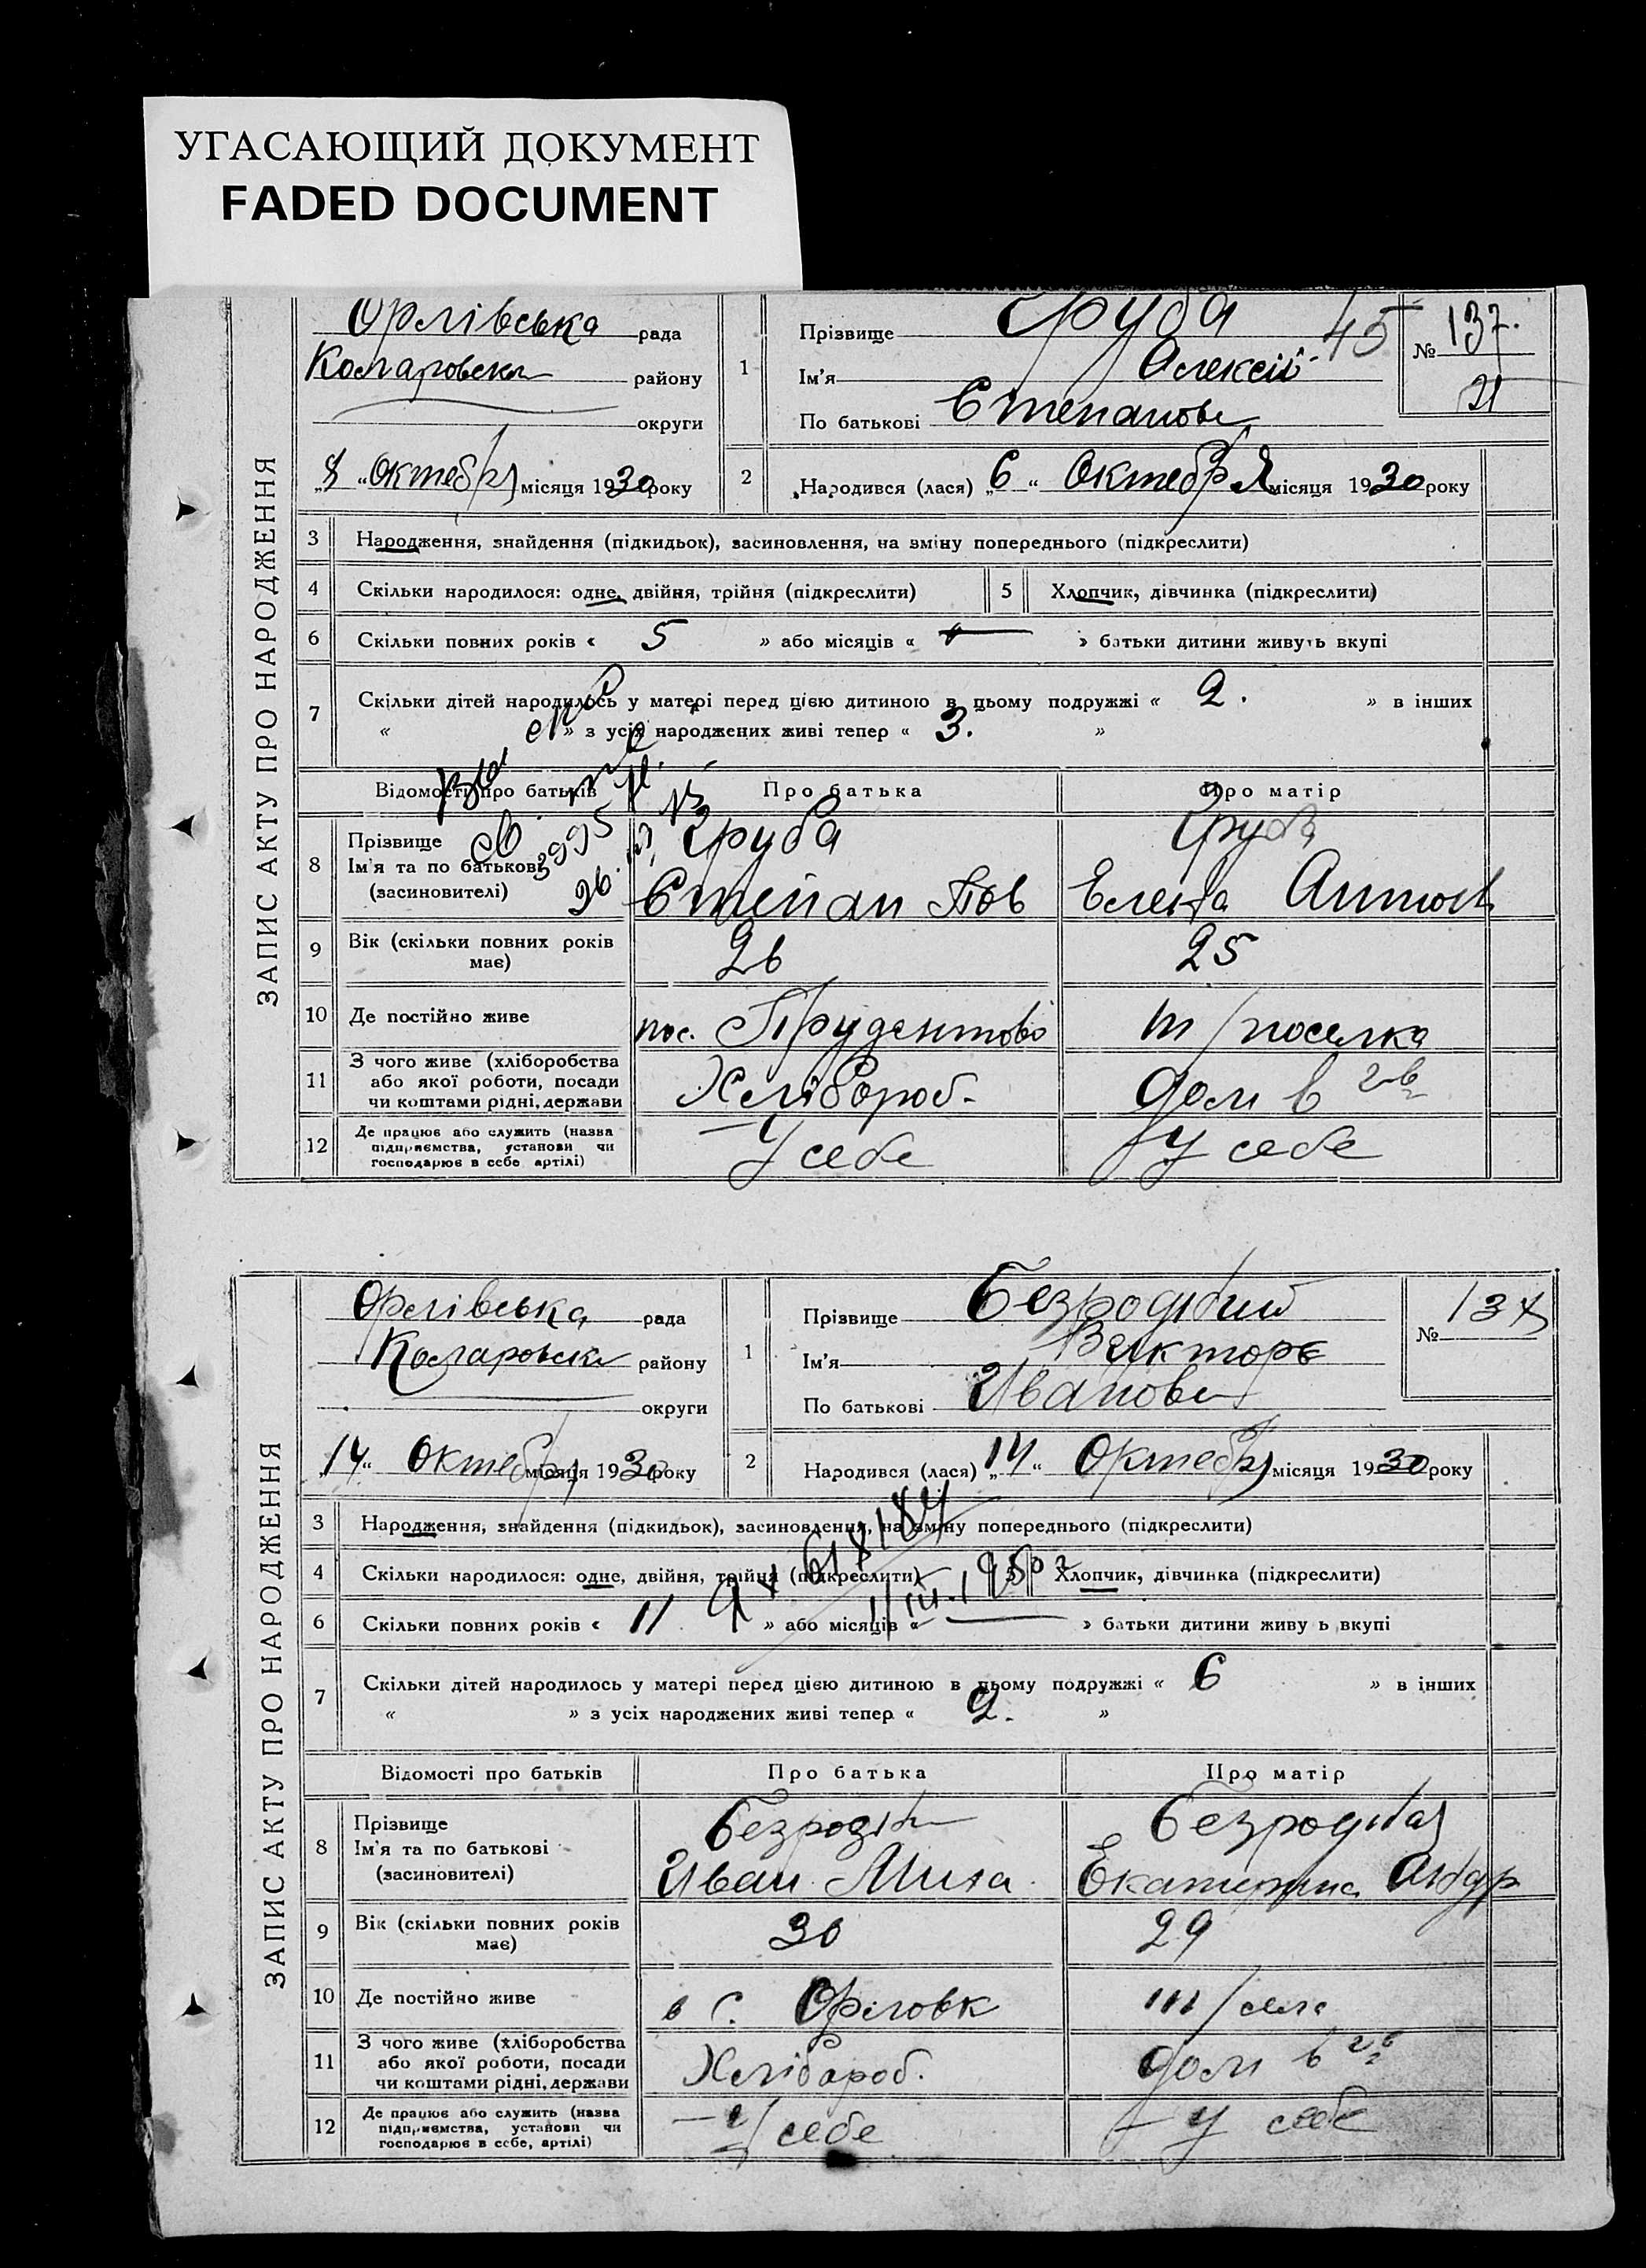 УГАСАЮЩИЙ ДОКУМЕНТ
FADED DOCUMENT
ЗАПИС АКТУ ПРО НАРОДЖЕННЯ
Орлівська рада
району
округи
8 „ Октебря місяця 1930 року
1
Прізвище Груба 45
Ім'я Алексій
По батькові Степанов
№ 137.
21
2
Народився (лася) „6“ Октебря місяця 1930 року
3 Народження, знайдення (підкидьок), засиновлення, на зміну попереднього (підкреслити)
4 Скільки народилося: одне, двійня, трійня (підкреслити) 5 Хлопчик, дівчинка (підкреслити)
6 Скільки повних років « 5 » або місяців « » батьки дитини живуть вкупі
7 Скільки дітей народилось у матері перед цією дитиною в цьому подружжі « 2. » в інших
« » з усіх народжених живі тепер « 3. »
Відомості про батьків Про батька Про матір
8 Прізвище Груба Груба
Ім'я та по батькові
(засиновителі) Степан Пов Елена Антон
9 Вік (скільки повних років має) 26 25
10 Де постійно живе пос. т/поселка
11 З чого живе (хліборобства
або якої роботи, посади
чи коштами рідні, держави Хлібороб. дом в
12 Де працює або служить (назва
підприємства, установи чи
господарює в себе артілі) – У себе – У себе
ЗАПИС АКТУ ПРО НАРОДЖЕННЯ
Орлівська рада
району
округи
„14“ Октебря місяця 1930 року
1
Прізвище Безродній
Ім'я Виктор
По батькові Иванов
№ 137
2
Народився (лася) „14“ Октебря місяця 1930 року
3 Народження, знайдення (підкидьок), засиновлення, на зміну попереднього (підкреслити)
4 Скільки народилося: одне, двійня, трійня (підкреслити) 5 Хлопчик, дівчинка (підкреслити)
618184
11/III.1950 г
6 Скільки повних років « 11 » або місяців « — » батьки дитини живуть вкупі
7 Скільки дітей народилось у матері перед цією дитиною в цьому подружжі « 6 » в інших
« » з усіх народжених живі тепер « 2. »
Відомості про батьків Про батька Про матір
8 Прізвище Безродній Безродная
Ім'я та по батькові
(засиновителі) Иван Миха Екатерина Андр
9 Вік (скільки повних років має) 30 29
10 Де постійно живе в с. Орловк т/села
11 З чого живе (хліборобства
або якої роботи, посади
чи коштами рідні, держави Хлібороб. дом в
12 Де працює або служить (назва
підприємства, установи чи
господарює в себе, артілі) – У себе – У себе